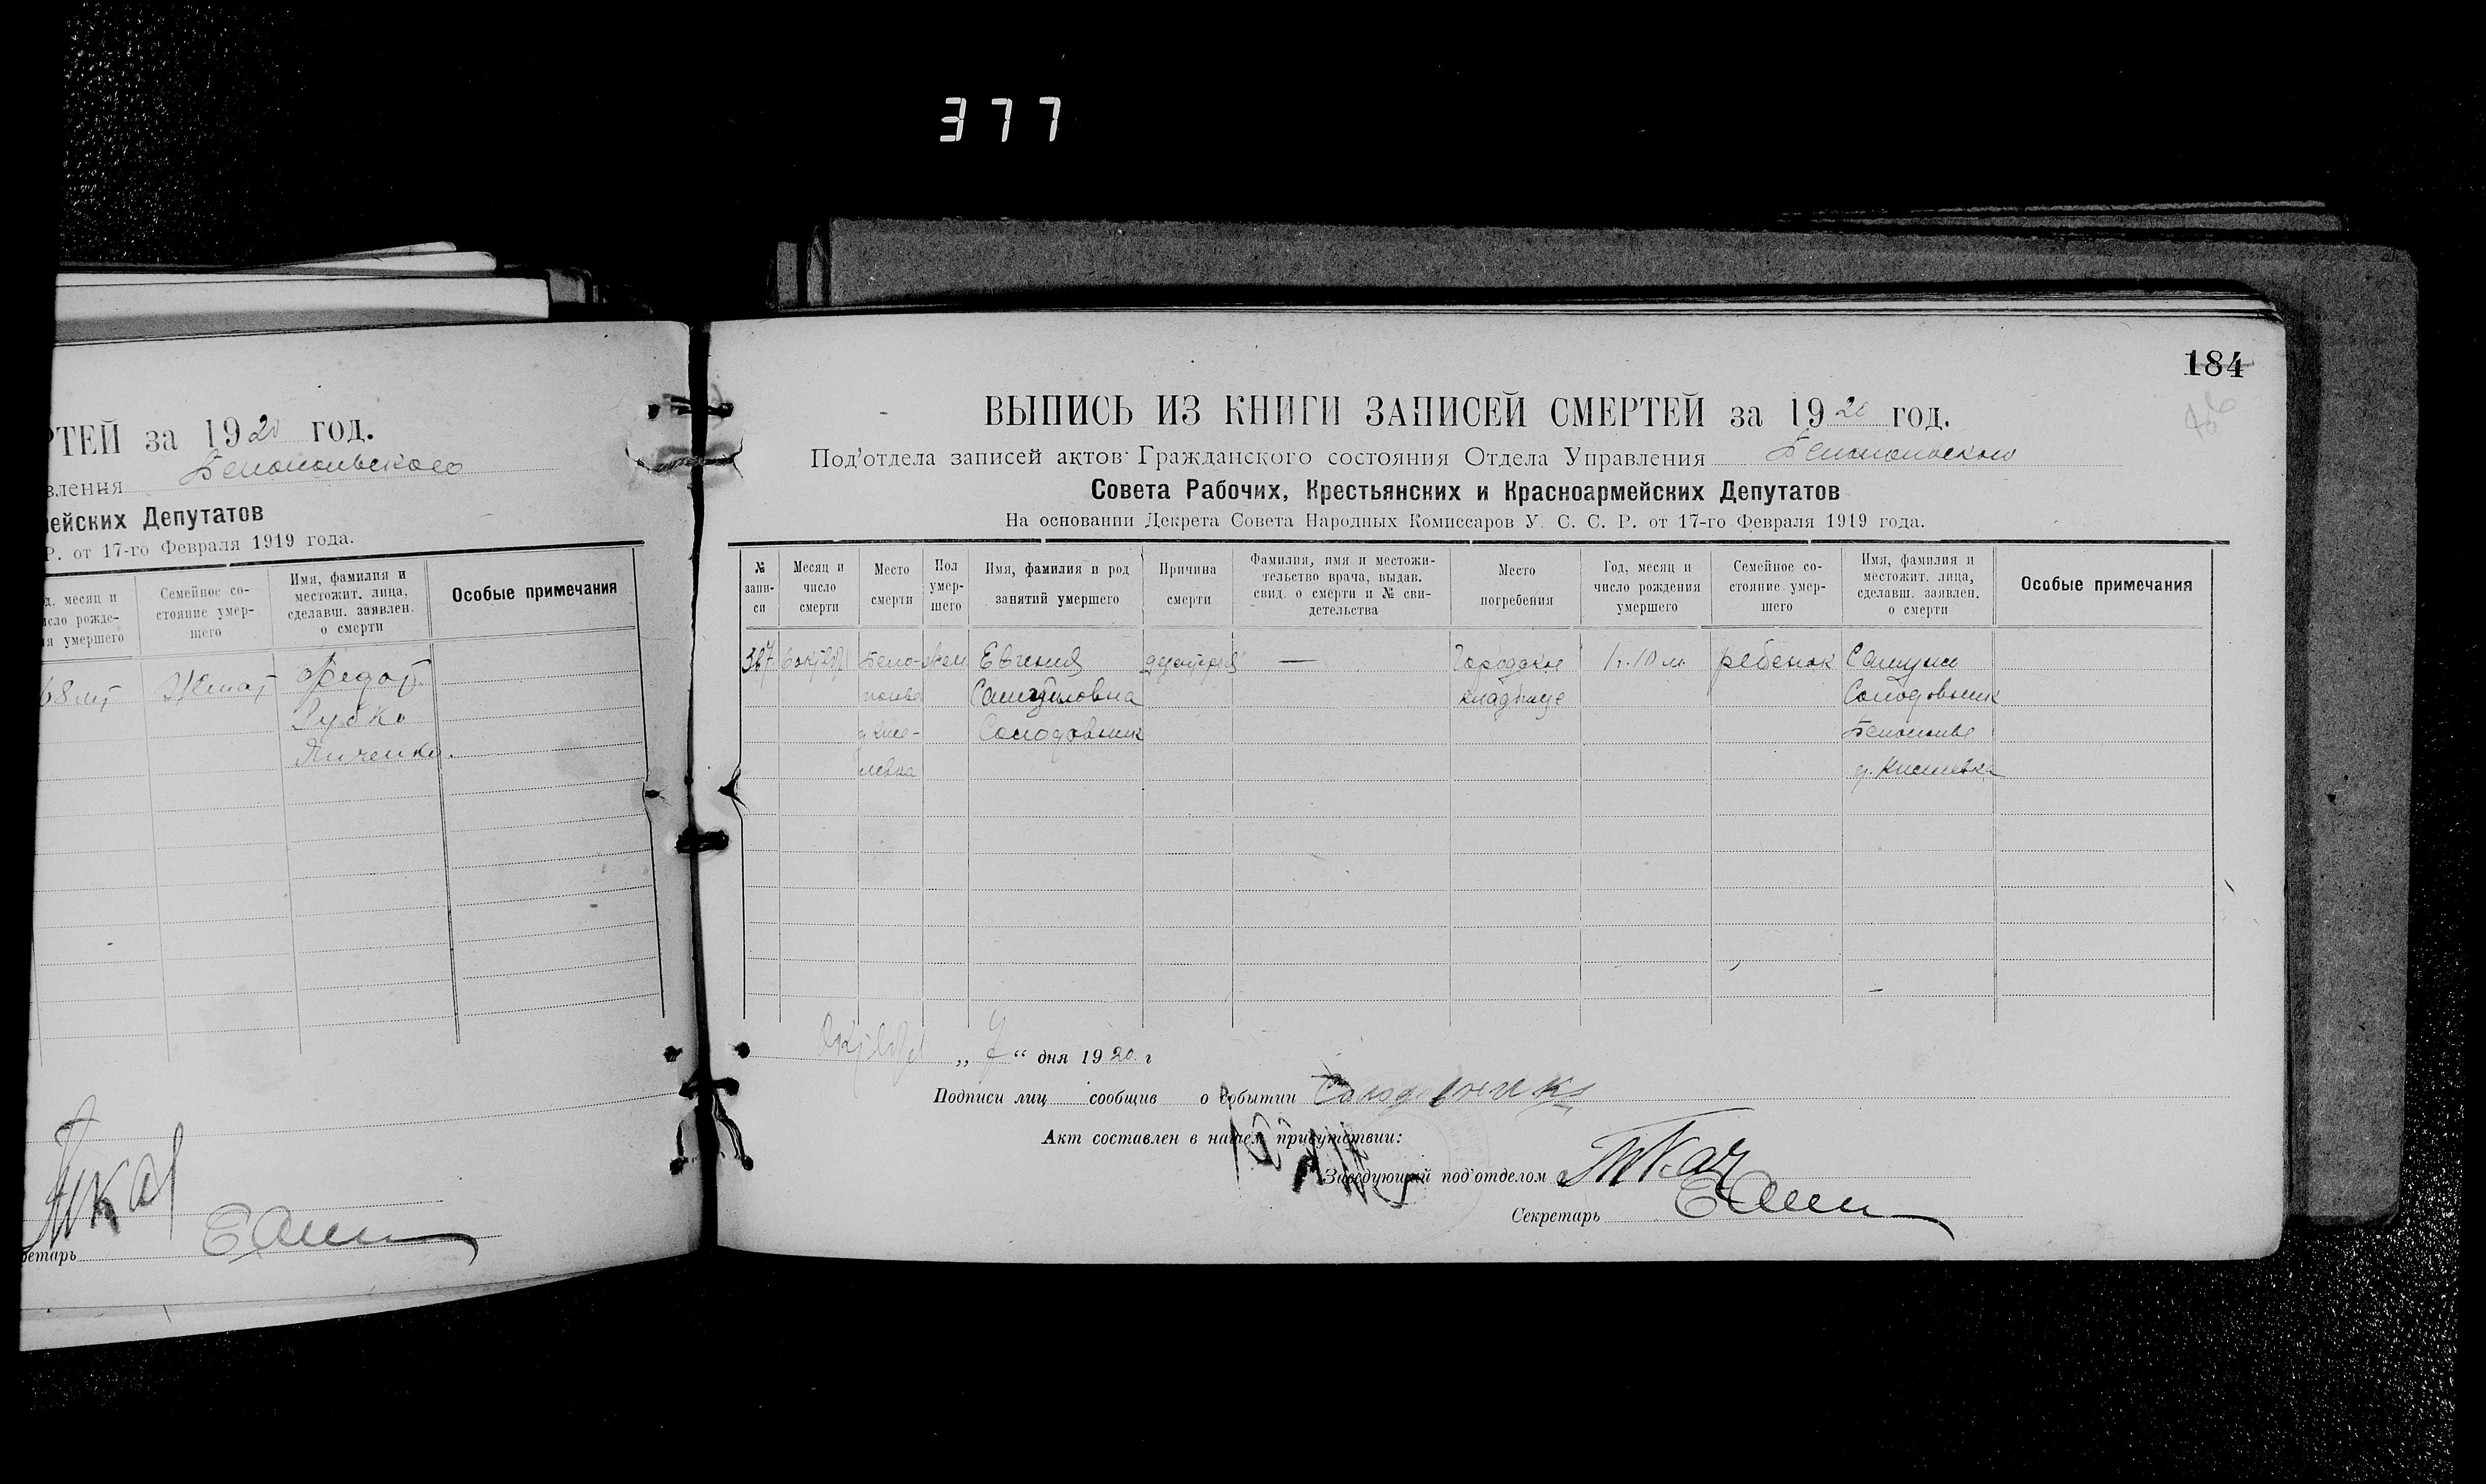 377
РТЕЙ за 1920 год.
вления Белопольского
мейских Депутатов
Р. от 17-го Февраля 1919 года.
д, месяц и
исло рожде-
ия умершего
Семейное со-
стояние умер-
шего
Имя, фамилия и
местожит. лица,
сделавш. заявлен.
о смерти
Особые примечания
68 лет
Женат
Федот
Зубко
бетарь
184
ВЫПИСЬ ИЗ КНИГИ ЗАПИСЕЙ СМЕРТЕЙ за 1920 год.
Под'отдела записей актов Гражданского состояния Отдела Управления Белопольского
Совета Рабочих, Крестьянских и Красноармейских Депутатов
На основании Декрета Совета Народных Комиссаров У. С. С. Р. от 17-го Февраля 1919 года.
№
запи-
си
Месяц и
число
смерти
Место
смерти
Пол
умер-
шего
Имя, фамилия и род
занятий умершего
Причина
смерти
Фамилия, имя и местожи-
тельство врача, выдав.
свид. о смерти и № сви-
детельства
Место
погребения
Год, месяц и
число рождения
умершего
Семейное со-
стояние умер-
шего
Имя, фамилия и
местожит. лица,
сделавш. заявлен.
о смерти
Особые примечания
367
6 октября
Бело-
полье
д. Кисе-
левка
жен
Евгения
Самуиловна
Солодовник
дизентерия
—
Городское
кладбище
1 г. 10 м.
ребенок
Самуил
Солодовник
Белополье
д. Киселевка
Октября „7“ дня 1920 г
Подписи лиц сообщив о событии Солодовник
Акт составлен в нашем присутствии:
Заведующий под'отделом Ткач
Секретарь